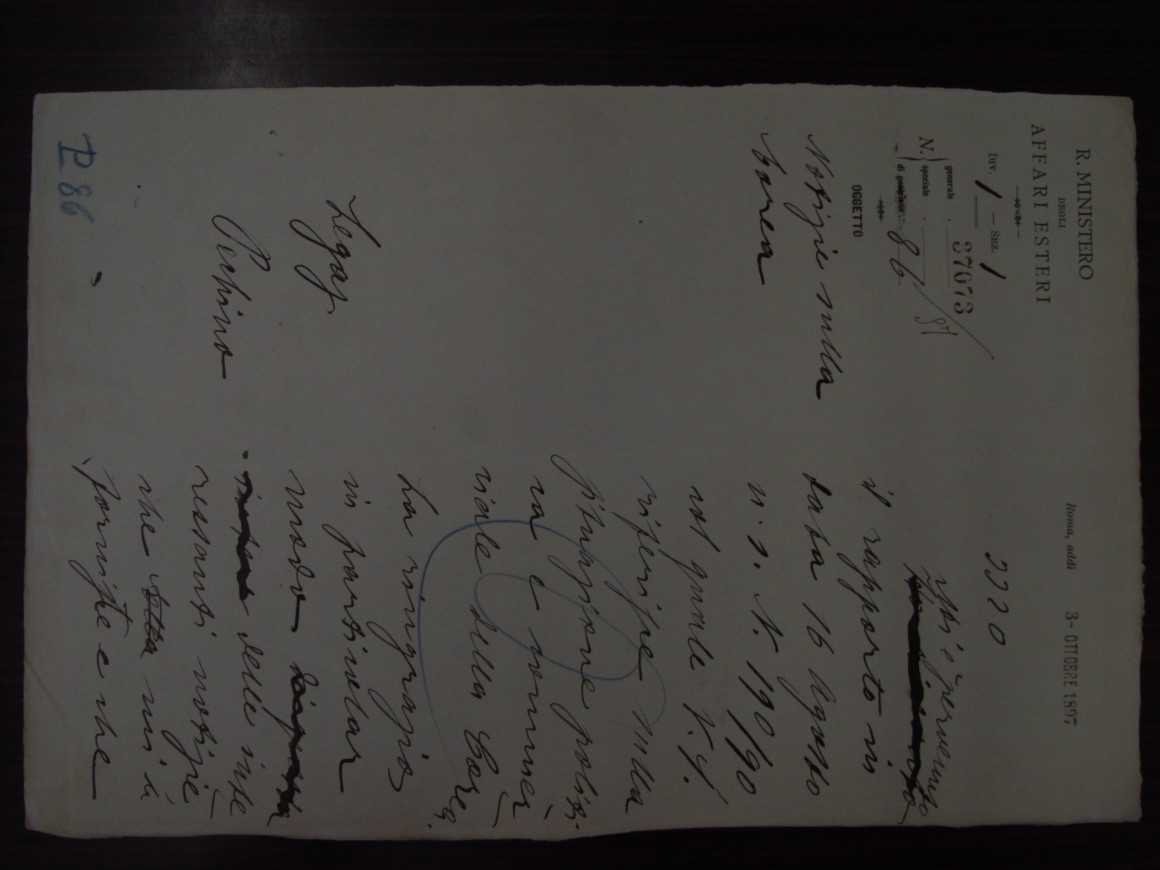 R. MINISTERO
DEGLI
AFFARI ESTERI
DIV. 1 - SEZ. 1
N. generale 37073
speciale
di 86/97
OGGETTO
Notizie sulla
Corea
Legaz.
Pechino
P 86
Roma, addì 3 - OTTOBRE 1897
2220
Mi è pervenuto
il rapporto in
data 16 Agosto
u. s. N. 190/90
nel quale V.S.
riferisce sulla
situazione politi-
ca e commer
ciale della Corea.
La ringrazio
in particolar
modo
delle inte
ressanti notizie
che mi à
fornite e che